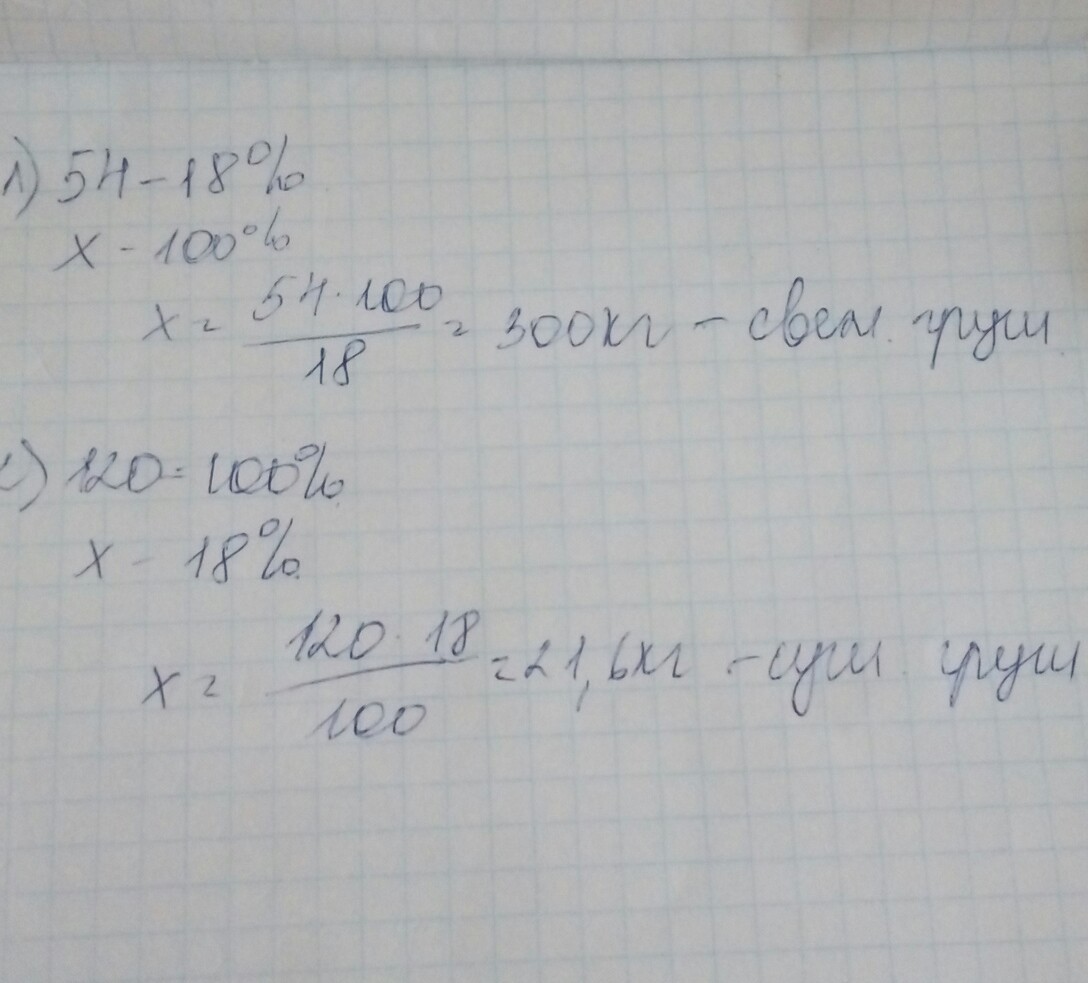 1) 54 - 18%
x - 100%
x = 54 · 100 / 18 = 300кг - свеж. груш
2) 120 - 100%
x - 18%
x = 120 · 18 / 100 = 21,6кг - суш. груш